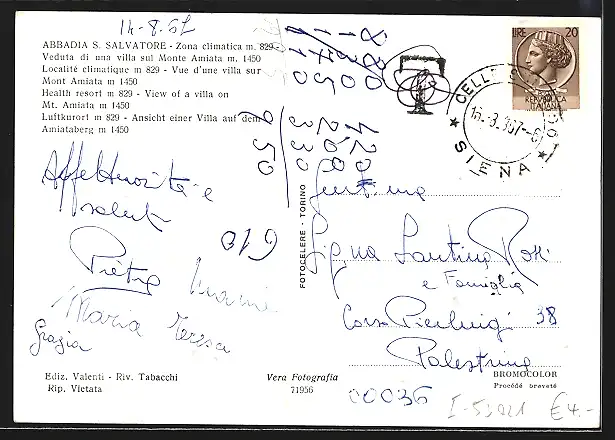 14-8-67
ABBADIA S. SALVATORE - Zona climatica m. 829 -
Veduta di una villa sul Monte Amiata m. 1450
Localité climatique m 829 - Vue d'une villa sur
Mont Amiata m 1450
Health resort m 829 - View of a villa on
Mt. Amiata m 1450
Luftkurort m 829 - Ansicht einer Villa auf dem
Amiataberg m 1450
LIRE 20
REPVBBLICA
ITALIANA
SIENA
Affettuosità e
saluti
Pietro
Maria Teresa
Grazia
019
FOTOCELERE - TORINO
Gent.ma
Sig.na Santina Rossi
e Famiglia
Corso Pierluigi 38
Palestrina
Ediz. Valenti - Riv. Tabacchi
Rip. Vietata
Vera Fotografia
71956
BROMOCOLOR
Procédé breveté
00036
I-53021 €4.-